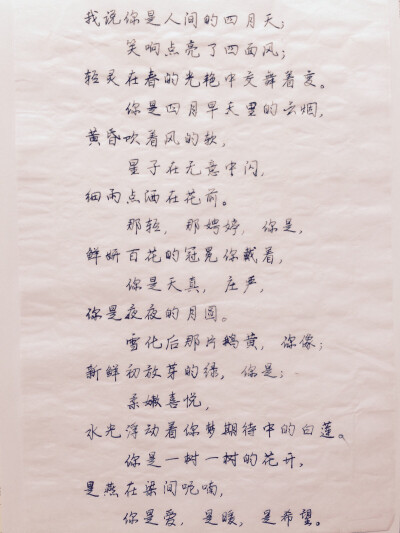 我说你是人间的四月天；
笑响点亮了四面风；
轻灵在春的光艳中交舞着变。
你是四月早天里的云烟，
黄昏吹着风的软，
星子在无意中闪，
细雨点洒在花前。
那轻，那娉婷，你是，
鲜妍百花的冠冕你戴着，
你是天真，庄严，
你是夜夜的月圆。
雪化后那片鹅黄，你像；
新鲜初放芽的绿，你是；
柔嫩喜悦，
水光浮动着你梦期待中的白莲。
你是一树一树的花开，
是燕在梁间呢喃，
你是爱，是暖，是希望。